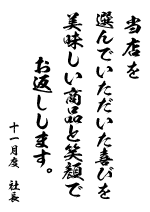 当店を
選んでいただいた喜びを
美味しい商品と笑顔で
お返しします。
十一月度 社長